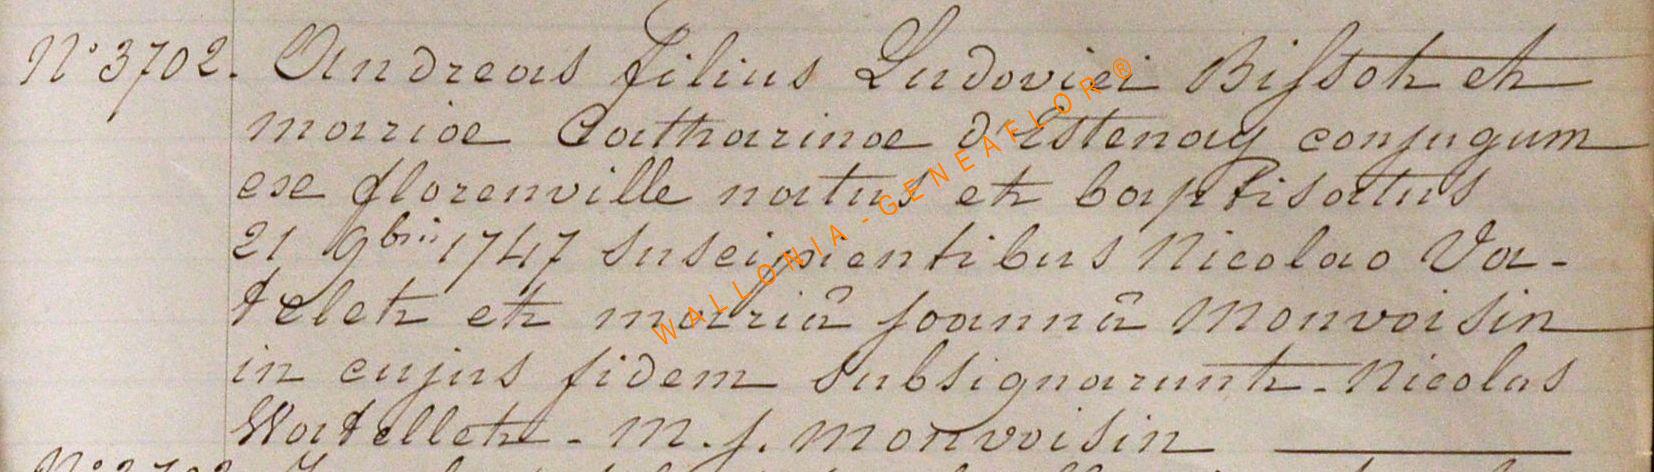 N° 3702. Andreas filius Ludovici Bissot et
mariae Catharinae d'Estenay conjugum
ex florenville natus et baptisatus
21 9bris 1747 suscipientibus Nicolao Va-
telet et mariâ joannâ Monvoisin
in cujus fidem subsignarunt - Nicolas
Watellet - M. j. Monvoisin
WALLONIA - GENEAFLOR ®